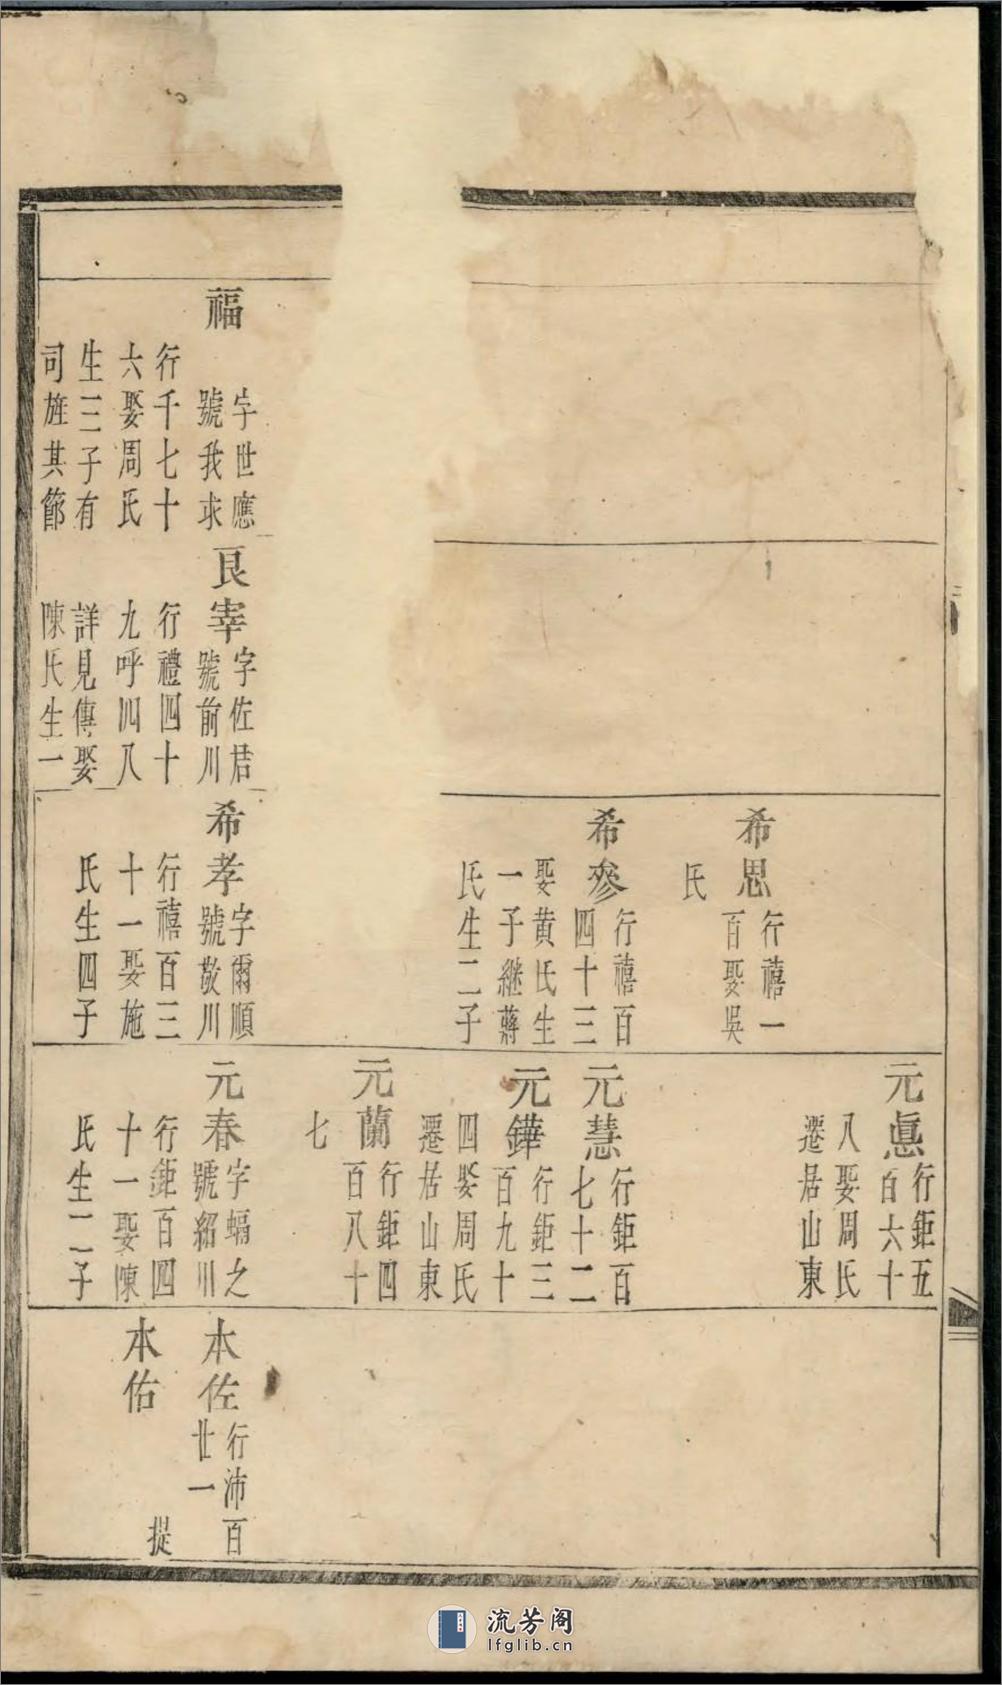 福
字世應
號我求
行千七十
六娶周氏
生二子有
司旌其節
艮宰
字佐君
號前川
行禮四十
九呼四八
詳見傳娶
陳氏生一
希思
行禧一
百娶吳
氏
希參
行禧百
四十三
娶黄氏生
一子継蔣
氏生二子
希孝
字爾順
號敬川
行禧百三
十一娶施
氏生四子
元真
行鉅五
百六十
八娶周氏
遷居山東
元慧
行鉅百
七十二
元鏵
行鉅三
百九十
四娶周氏
遷居山東
元蘭
行鉅四
百八十
七
元春
字蝠之
號紹川
行鉅百四
十一娶陳
氏生二子
本佐
行沛百
廿一
本佑
提
流芳阁
lfglib.cn